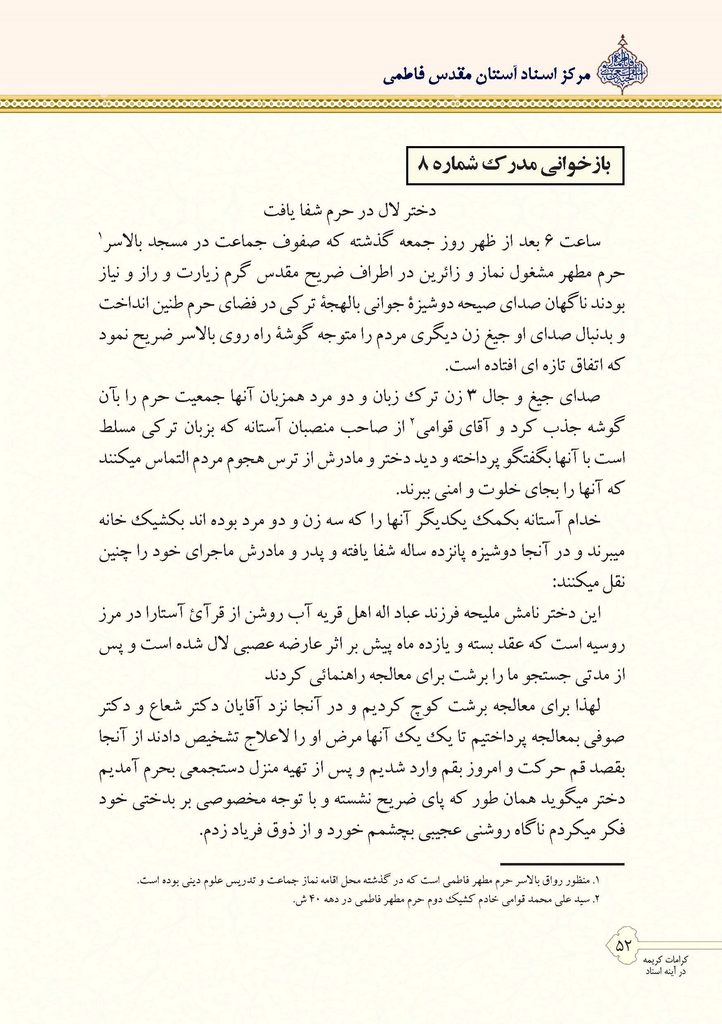 مرکز اسناد آستان مقدس فاطمی
بازخوانی مدرک شماره ۸
دختر لال در حرم شفا یافت
ساعت ۶ بعد از ظهر روز جمعه گذشته که صفوف جماعت در مسجد بالاسر۱
حرم مطهر مشغول نماز و زائرین در اطراف ضریح مقدس گرم زیارت و راز و نیاز
بودند ناگهان صدای صیحه دوشیزهٔ جوانی بالهجهٔ ترکی در فضای حرم طنین انداخت
و بدنبال صدای او جیغ زن دیگری مردم را متوجه گوشهٔ راه روی بالاسر ضریح نمود
که اتفاق تازه ای افتاده است.
صدای جیغ و جال ۳ زن ترک زبان و دو مرد همزبان آنها جمعیت حرم را بآن
گوشه جذب کرد و آقای قوامی۲ از صاحب منصبان آستانه که بزبان ترکی مسلط
است با آنها بگفتگو پرداخته و دید دختر و مادرش از ترس هجوم مردم التماس میکنند
که آنها را بجای خلوت و امنی ببرند.
خدام آستانه بکمک یکدیگر آنها را که سه زن و دو مرد بوده اند بکشیک خانه
میبرند و در آنجا دوشیزه پانزده ساله شفا یافته و پدر و مادرش ماجرای خود را چنین
نقل میکنند:
این دختر نامش ملیحه فرزند عباد اله اهل قریه آب روشن از قرآئ آستارا در مرز
روسیه است که عقد بسته و یازده ماه پیش بر اثر عارضه عصبی لال شده است و پس
از مدتی جستجو ما را برشت برای معالجه راهنمائی کردند
لهذا برای معالجه برشت کوچ کردیم و در آنجا نزد آقایان دکتر شعاع و دکتر
صوفی بمعالجه پرداختیم تا یک یک آنها مرض او را لاعلاج تشخیص دادند از آنجا
بقصد قم حرکت و امروز بقم وارد شدیم و پس از تهیه منزل دستجمعی بحرم آمدیم
دختر میگوید همان طور که پای ضریح نشسته و با توجه مخصوصی بر بدختی خود
فکر میکردم ناگاه روشنی عجیبی بچشمم خورد و از ذوق فریاد زدم.
۱. منظور رواق بالاسر حرم مطهر فاطمی است که در گذشته محل اقامه نماز جماعت و تدریس علوم دینی بوده است.
۲. سید علی محمد قوامی خادم کشیک دوم حرم مطهر فاطمی در دهه ۴۰ ش.
۵۲
کرامات کریمه
در آینه اسناد